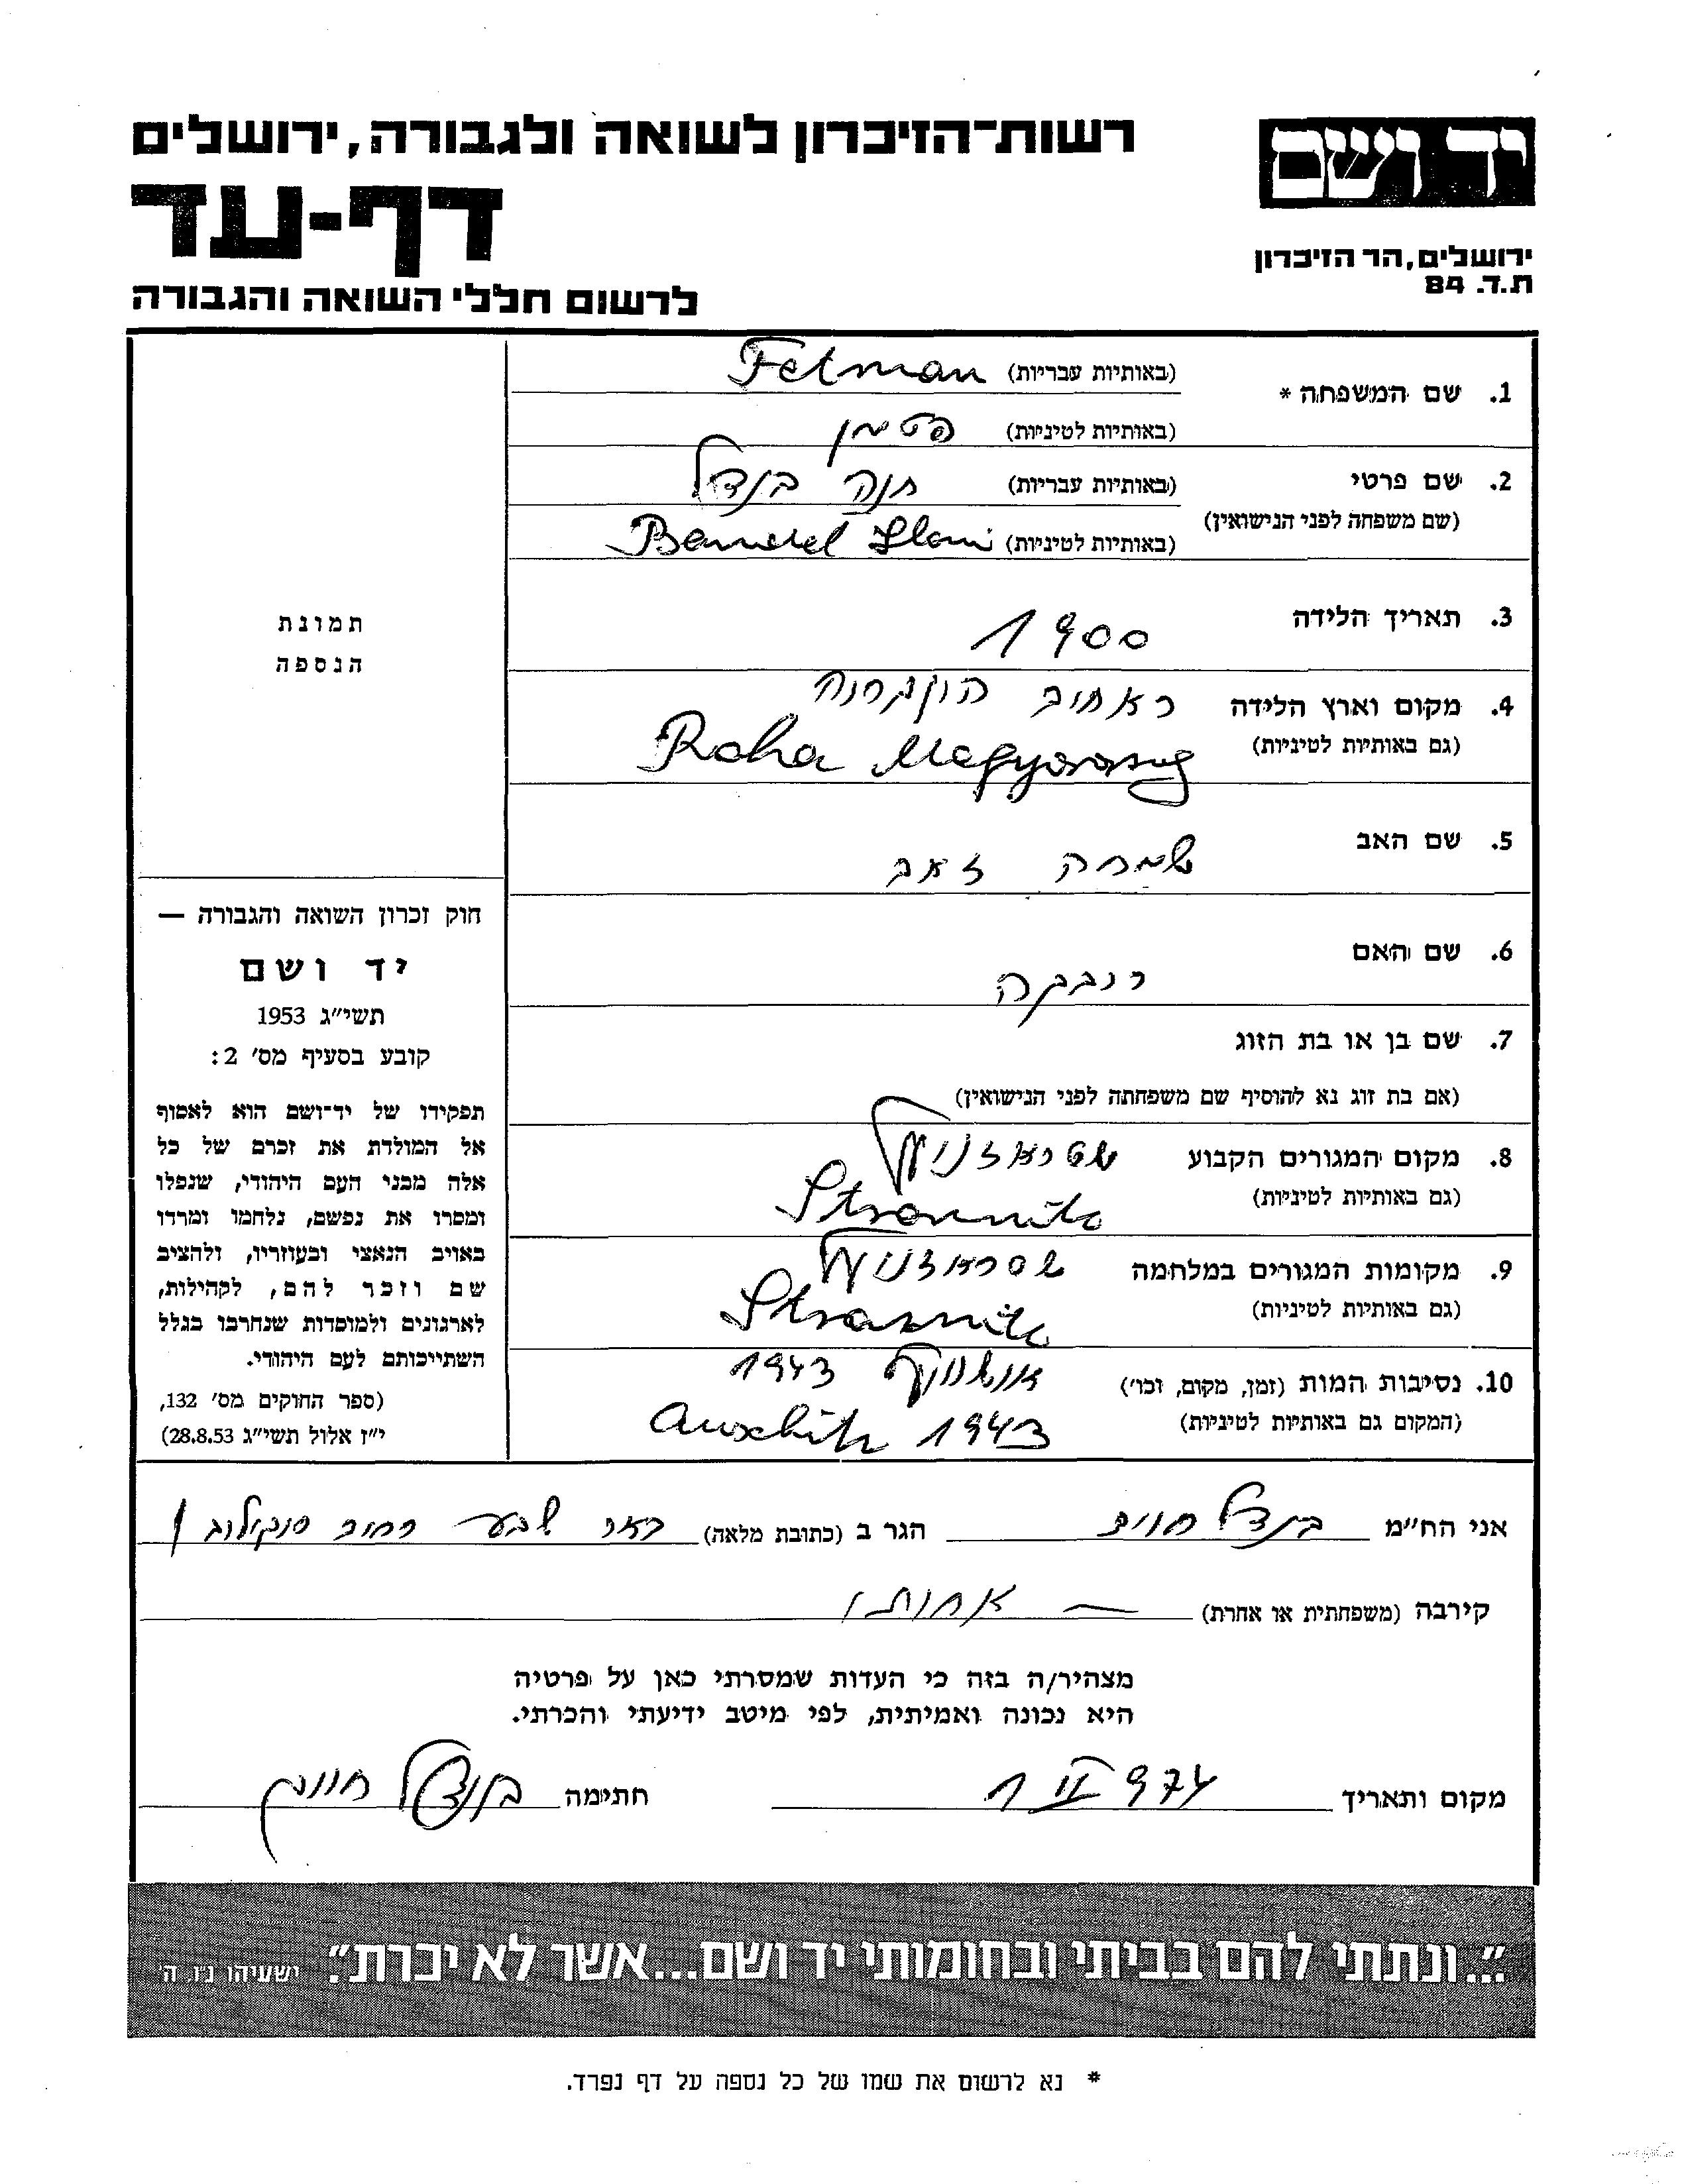 רשות־הזיכרון לשואה ולגבורה, ירושלים
דף-עד
לרשום חללי השואה והגבורה
יד ושם
ירושלים, הר הזיכרון
ת.ד. 84
1. שם המשפחה * (באותיות עבריות) Fetman
(באותיות לטיניות) פטמן
2. שם פרטי (באותיות עבריות) חנה בנדל
(שם משפחה לפני הנישואין)
(באותיות לטיניות)
3. תאריך הלידה 1900
4. מקום וארץ הלידה
(גם באותיות לטיניות) Raho
5. שם האב שמחה זאב
6. שם האם
7. שם בן או בת הזוג
(אם בת זוג נא להוסיף שם משפחתה לפני הנישואין)
8. מקום המגורים הקבוע
(גם באותיות לטיניות)
9. מקומות המגורים במלחמה
(גם באותיות לטיניות)
10. נסיבות המות (זמן, מקום, וכו') 1943
(המקום גם באותיות לטיניות) 1943
תמונת
הנספה
חוק זכרון השואה והגבורה —
יד ושם
תשי"ג 1953
קובע בסעיף מס' 2:
תפקידו של יד־ושם הוא לאסוף
אל המולדת את זכרם של כל
אלה מבני העם היהודי, שנפלו
ומסרו את נפשם, נלחמו ומרדו
באויב הנאצי ובעוזריו, ולהציב
שם וזכר להם, לקהילות,
לארגונים ולמוסדות שנחרבו בגלל
השתייכותם לעם היהודי.
(ספר החוקים מס' 132,
י"ז אלול תשי"ג 28.8.53)
אני הח"מ בנדל הגר ב (כתובת מלאה) באר שבע רחוב סוקולוב
קירבה (משפחתית או אחרת) — אחותו
מצהיר/ה בזה כי העדות שמסרתי כאן על פרטיה
היא נכונה ואמיתית, לפי מיטב ידיעתי והכרתי.
מקום ותאריך 1 II 974 חתימה בנדל
"...ונתתי להם בביתי ובחומותי יד ושם...אשר לא יכרת". ישעיהו נ"ו, ה'
* נא לרשום את שמו של כל נספה על דף נפרד.